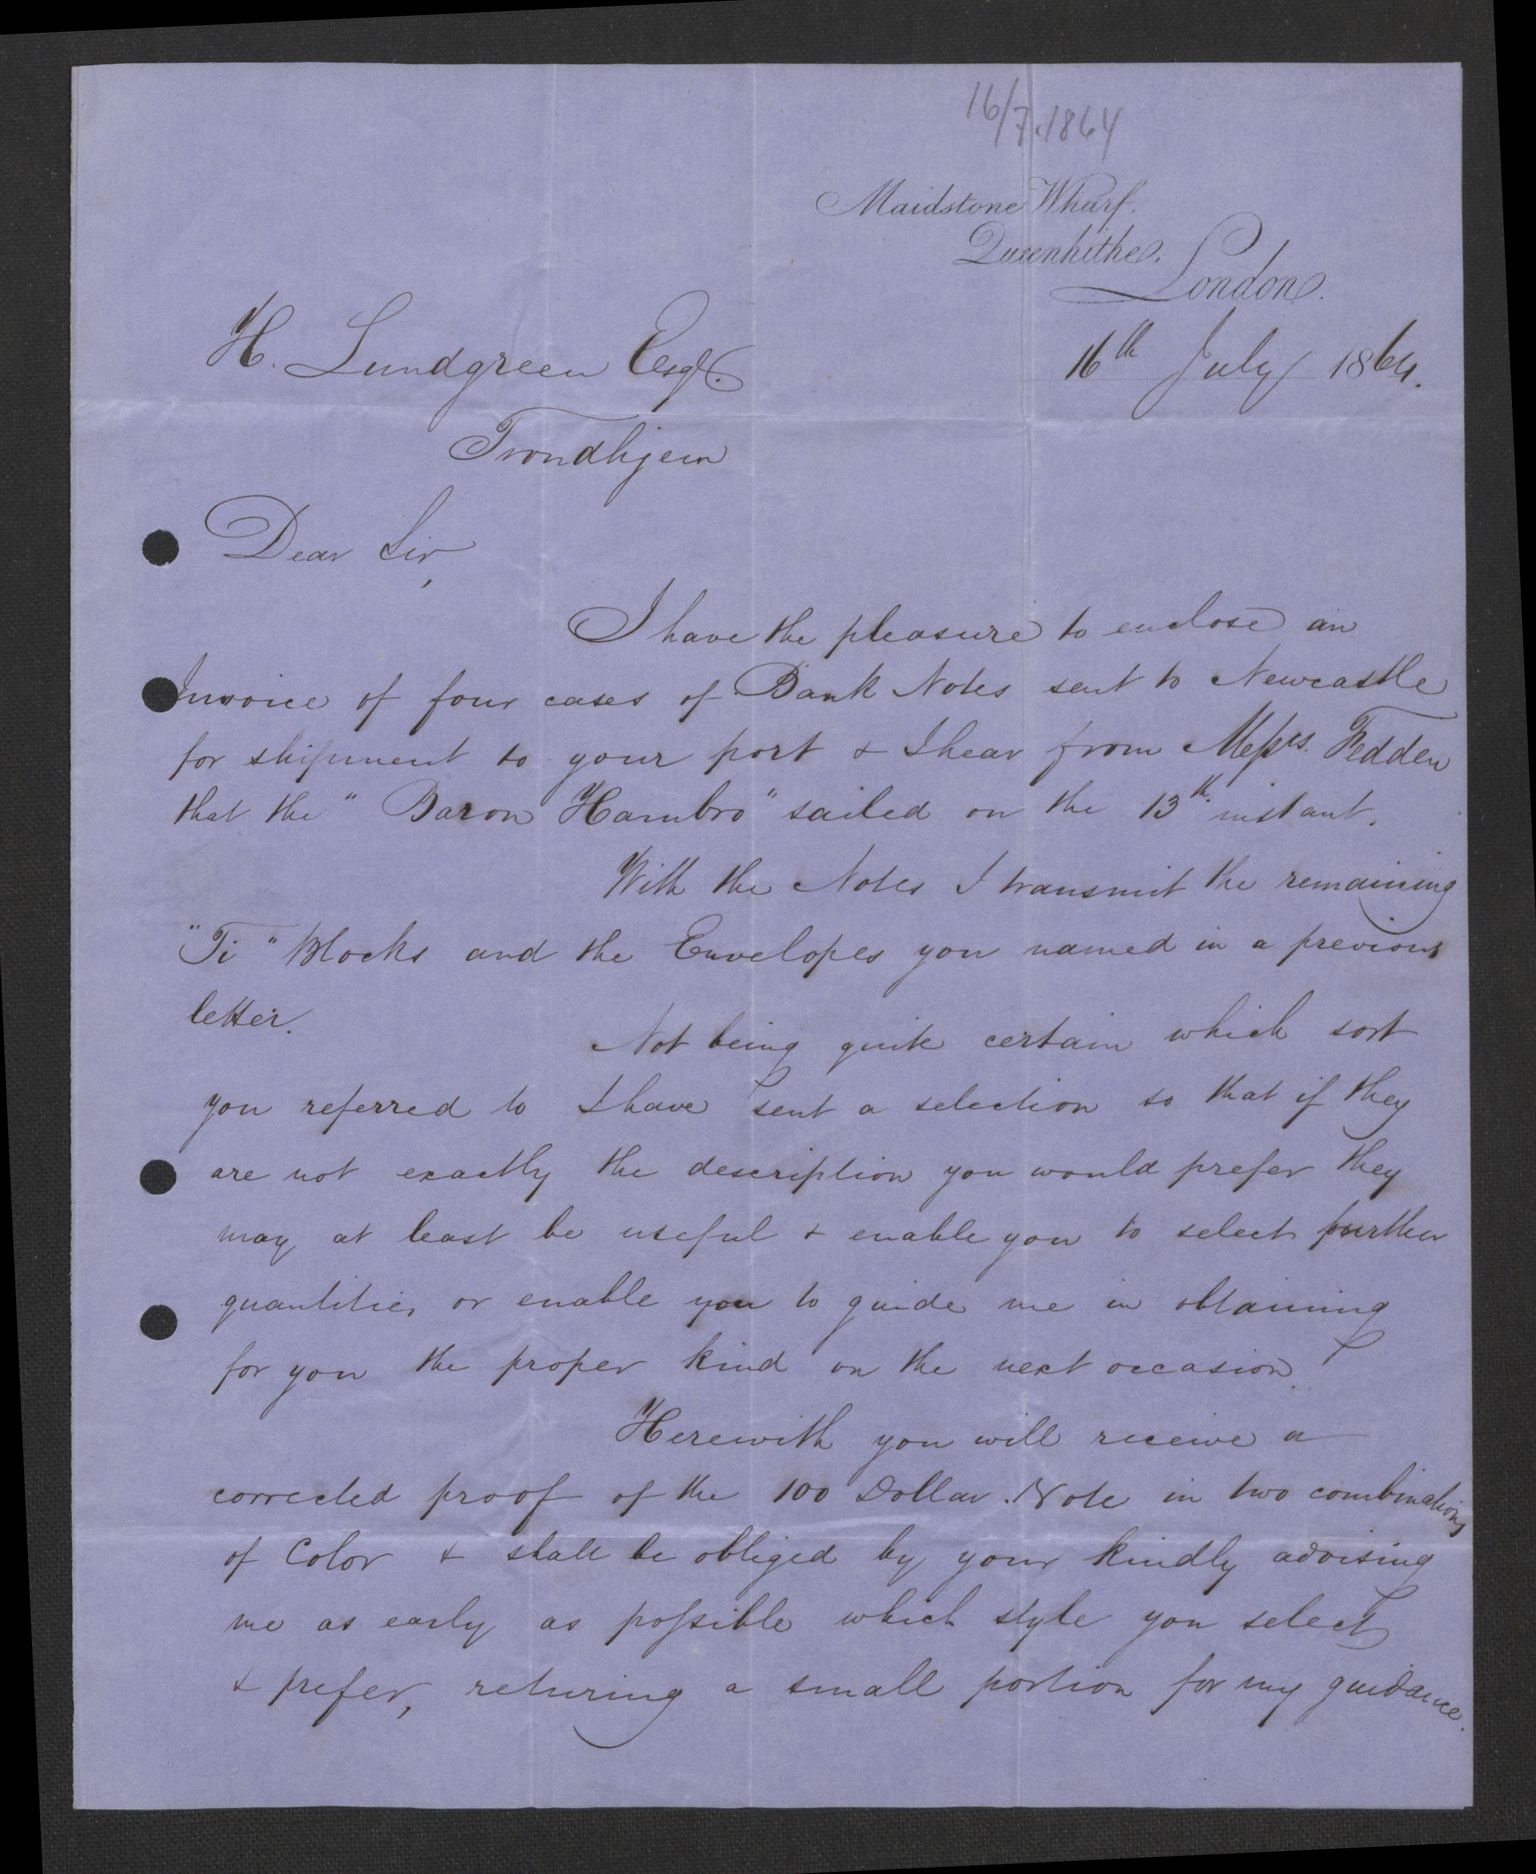 16/7.1864
Maidstone Wharf.
Queenhithe.
London.
H. Lundgreen Esqr.
16th July 1864.
Trondhjem
Dear Sir,
I have the pleasure to enclose an
Invoice of four cases of Bank Notes sent to Newcastle
for shipment to your port & I hear from Messrs. Fedden
that the "Baron Hambro" sailed on the 13th instant.
With the Notes I transmit the remaining
"Ti" Blocks and the Envelopes you named in a previous
letter.
Not being quite certain which sort
you referred to I have sent a selection so that if they
are not exactly the description you would prefer they
may at least be useful & enable you to select further
quantities or enable you to guide me in obtaining
for you the proper kind on the next occasion.
Herewith you will receive a
corrected proof of the 100 Dollar Note in two combinations
of Color & shall be obliged by your kindly advising
me as early as possible which style you select
& prefer, returing a small portion for my guidance.